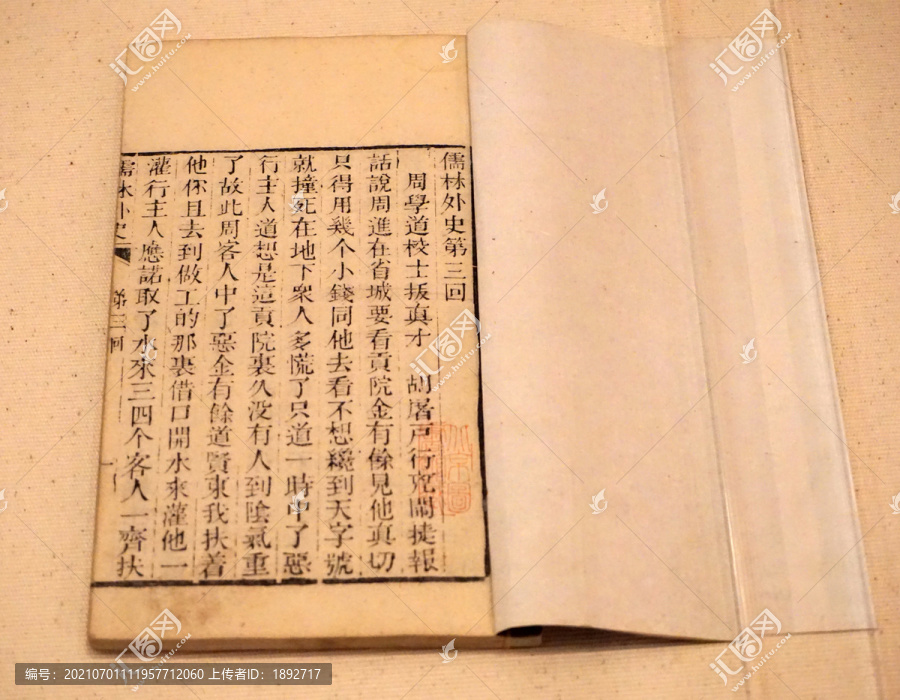 儒林外史第三回
周學道校士拔真才　胡屠戸行兇鬧捷報
話說周進在省城要看貢院金有餘見他真切
只得用幾个小錢同他去看不想纔到天字號
就撞死在地下衆人多慌了只道一時中了惡
行主人道想是這貢院裏久没有人到陰氣重
了故此周客人中了惡金有餘道賢東我扶着
他你且去到做工的那裏借口開水來灌他一
灌行主人應諾取了水來三四个客人一齊扶
儒林外史
第三回
汇图网
www.huitu.com
编号：20210701111957712060 上传者ID：1892717